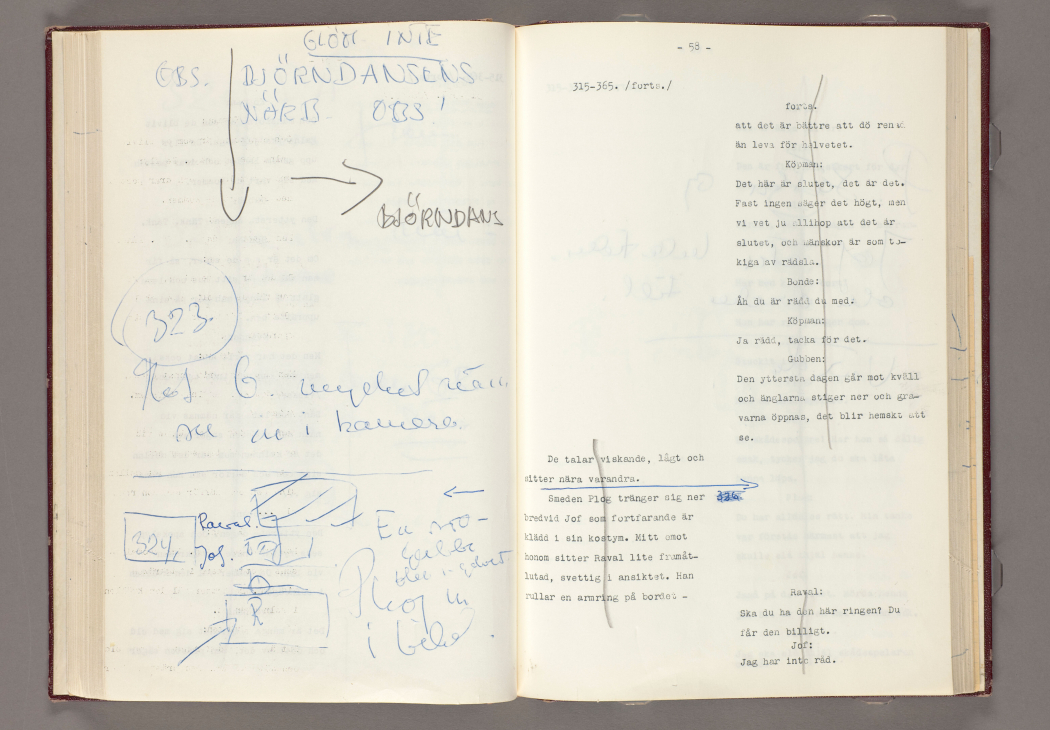 GLÖM INTE
OBS. BJÖRNDANSENS
NÄRB OBS!
BJÖRNDANS
323.
Jof mycket
i kamera.
324.
Raval
Jof.
R
En
Plog in
i bild
- 58 -
315-365. /forts./
forts.
att det är bättre att dö renad
än leva för helvetet.
Köpman:
Det här är slutet, det är det.
Fast ingen säger det högt, men
vi vet ju allihop att det är
slutet, och mänskor är som to-
kiga av rädsla.
Bonde:
Åh du är rädd du med.
Köpman:
Ja rädd, tacka för det.
Gubben:
Den yttersta dagen går mot kväll
och änglarna stiger ner och gra-
varna öppnas, det blir hemskt att
se.
De talar viskande, lågt och
sitter nära varandra.
Smeden Plog tränger sig ner 324
bredvid Jof som fortfarande är
klädd i sin kostym. Mitt emot
honom sitter Raval lite framåt-
lutad, svettig i ansiktet. Han
rullar en armring på bordet -
Raval:
Ska du ha den här ringen? Du
får den billigt.
Jof:
Jag har inte råd.